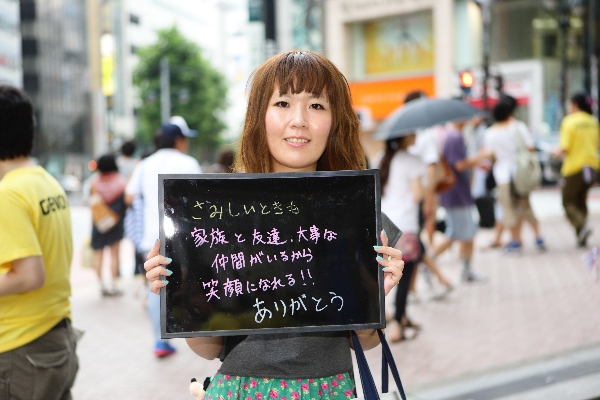 さみしいときも
家族と友達、大事な
仲間がいるから
笑顔になれる!!
ありがとう